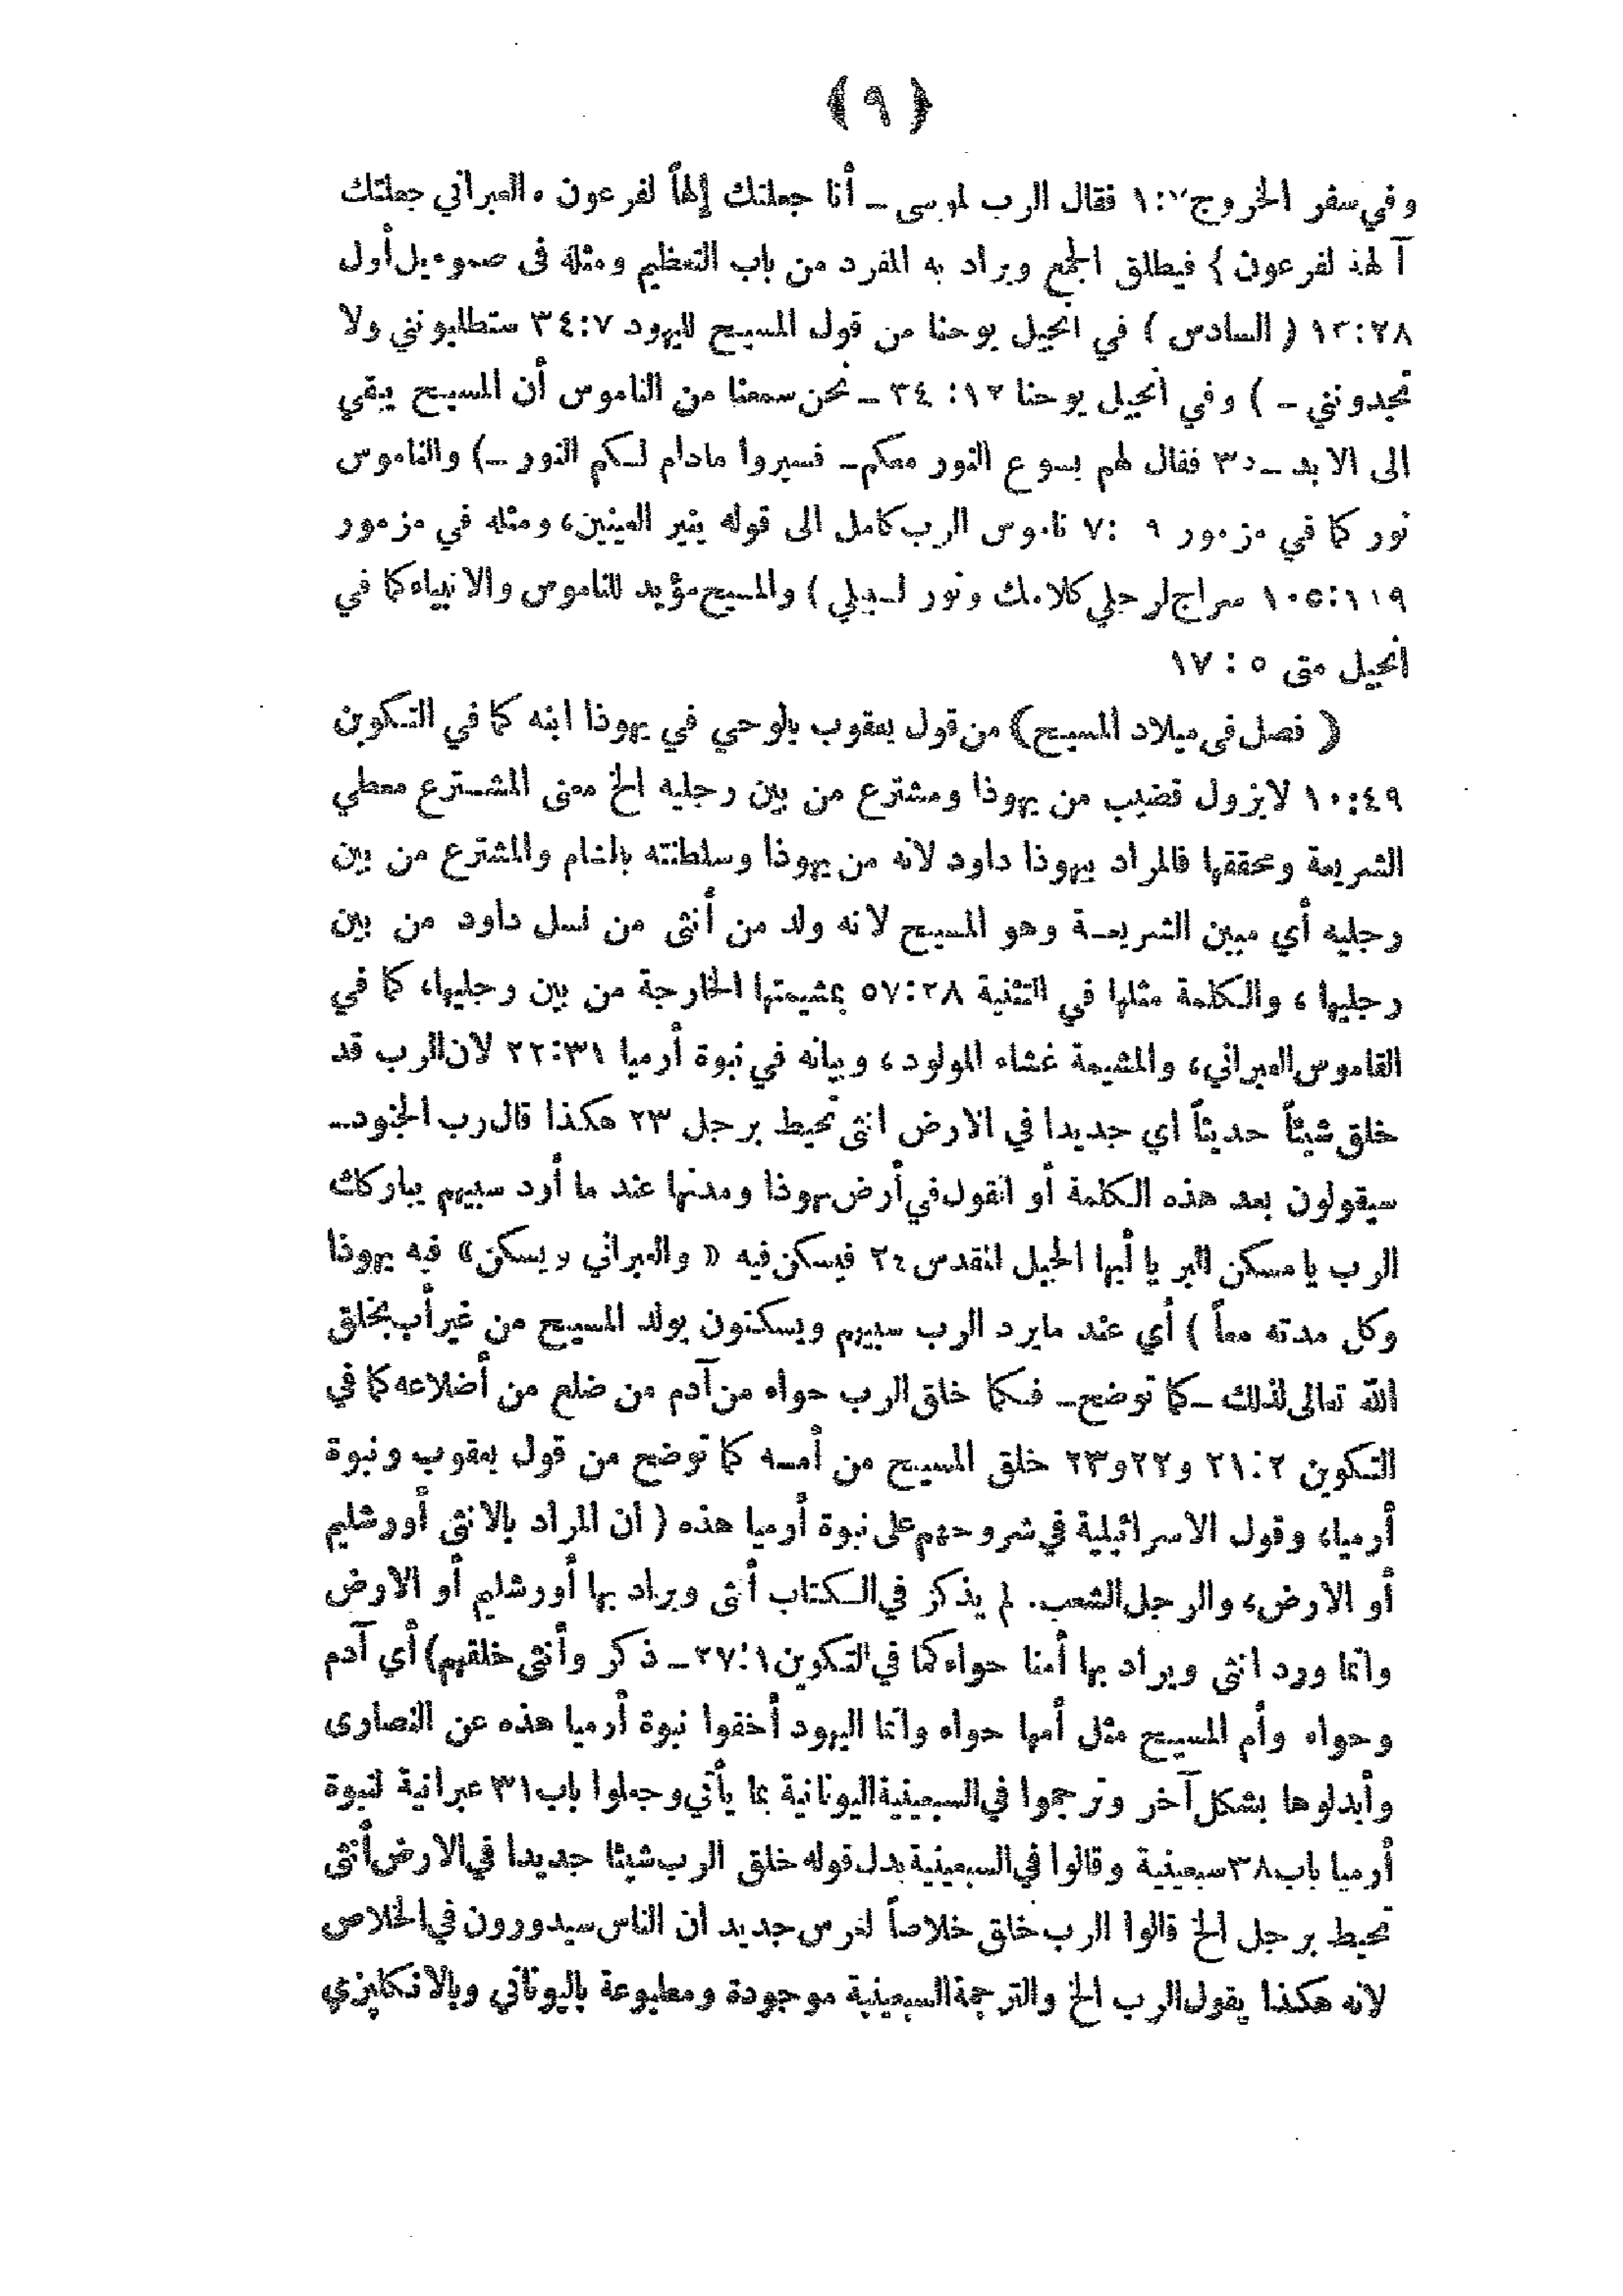 ﴿ ٩ ﴾
وفي سفر الخروج ٧:١ فقال الرب لموسى ــ أنا جعلتك إلهاً لفرعون ٠ العبراني جعلتك
آلهة لفرعون } فيطلق الجمع ويراد به المفرد من باب التعظيم ومثله فى صموءيل أول
١٣:٢٨ ( السادس ) في انجيل يوحنا من قول المسيح لليهود ٣٤:٧ ستطلبونني ولا
تجدونني ــ ) وفي انجيل يوحنا ١٢ : ٣٤ ــ نحن سمعنا من الناموس أن المسيح يبقي
الى الابد ــ ٣٥ فقال لهم يسوع النور معكم ــ فسيروا مادام لكم النور ــ) والناموس
نور كما في مزمور ٩ :٧ ناموس الرب كامل الى قوله ينير العينين، ومثله في مزمور
١٠٥:١١٩ سراج لرجلي كلامك ونور لسبيلي ) والمسيح مؤيد للناموس والانبياء كما في
انجيل متى ٥ : ١٧
( فصل فى ميلاد المسيح) من قول يعقوب بالوحي في يهوذا ابنه كما في التكوين
١٠:٤٩ لايزول قضيب من يهوذا ومشترع من بين رجليه الخ معنى المشترع معطي
الشريعة ومحققها فالمراد بيهوذا داود لانه من يهوذا وسلطنته بالشام والمشترع من بين
رجليه أي مبين الشريعة وهو المسيح لانه ولد من أنثى من نسل داود من بين
رجليها ، والكلمة مثلها في التثنية ٥٧:٢٨ بمشيمتها الخارجة من بين رجليها، كما في
القاموس العبراني، والمشيمة غشاء المولود ، وبيانه في نبوة أرميا ٢٢:٣١ لان الرب قد
خلق شيئاً حديثاً اي جديدا في الارض انثى تحيط برجل ٢٣ هكذا قال رب الجنود ــ
سيقولون بعد هذه الكلمة أو القول في أرض يهوذا ومدنها عند ما أرد سبيهم يباركك
الرب يا مسكن البر يا أيها الجبل المقدس ٢٤ فيسكن فيه « والعبراني ويسكن» فيه يهوذا
وكل مدته معاً ) أي عند مايرد الرب سبيهم ويسكنون يولد المسيح من غير أب بخلق
الله تعالى لذلك ــ كما توضح ــ فكما خلق الرب حواء من آدم من ضلع من أضلاعه كما في
التكوين ٢١:٢ و٢٢ و٢٣ خلق المسيح من أمه كما توضح من قول يعقوب ونبوة
أرميا، وقول الاسرائيلية في شروحهم على نبوة أرميا هذه ( ان المراد بالانثى أورشليم
أو الارض، والرجل الشعب. لم يذكر في الكتاب أنثى ويراد بها أورشليم أو الارض
وانما ورد انثى ويراد بها أمنا حواء كما في التكوين ٢٧:١ ــ ذكر وأنثى خلقهم) أي آدم
وحواء وأم المسيح مثل أمها حواء وانما اليهود أخفوا نبوة أرميا هذه عن النصارى
وأبدلوها بشكل آخر وترجموا في السبعينية اليونانية بما يأتي وجعلوا باب ٣١ عبرانية لنبوة
أرميا باب ٣٨ سبعينية وقالوا في السبعينية بدل قوله خلق الرب شيئا جديدا في الارض أنثى
تحيط برجل الخ قالوا الرب خلق خلاصاً لغرس جديد ان الناس سيدورون في الخلاص
لانه هكذا يقول الرب الخ والترجمة السبعينية موجودة ومطبوعة باليوناني وبالانكليزي